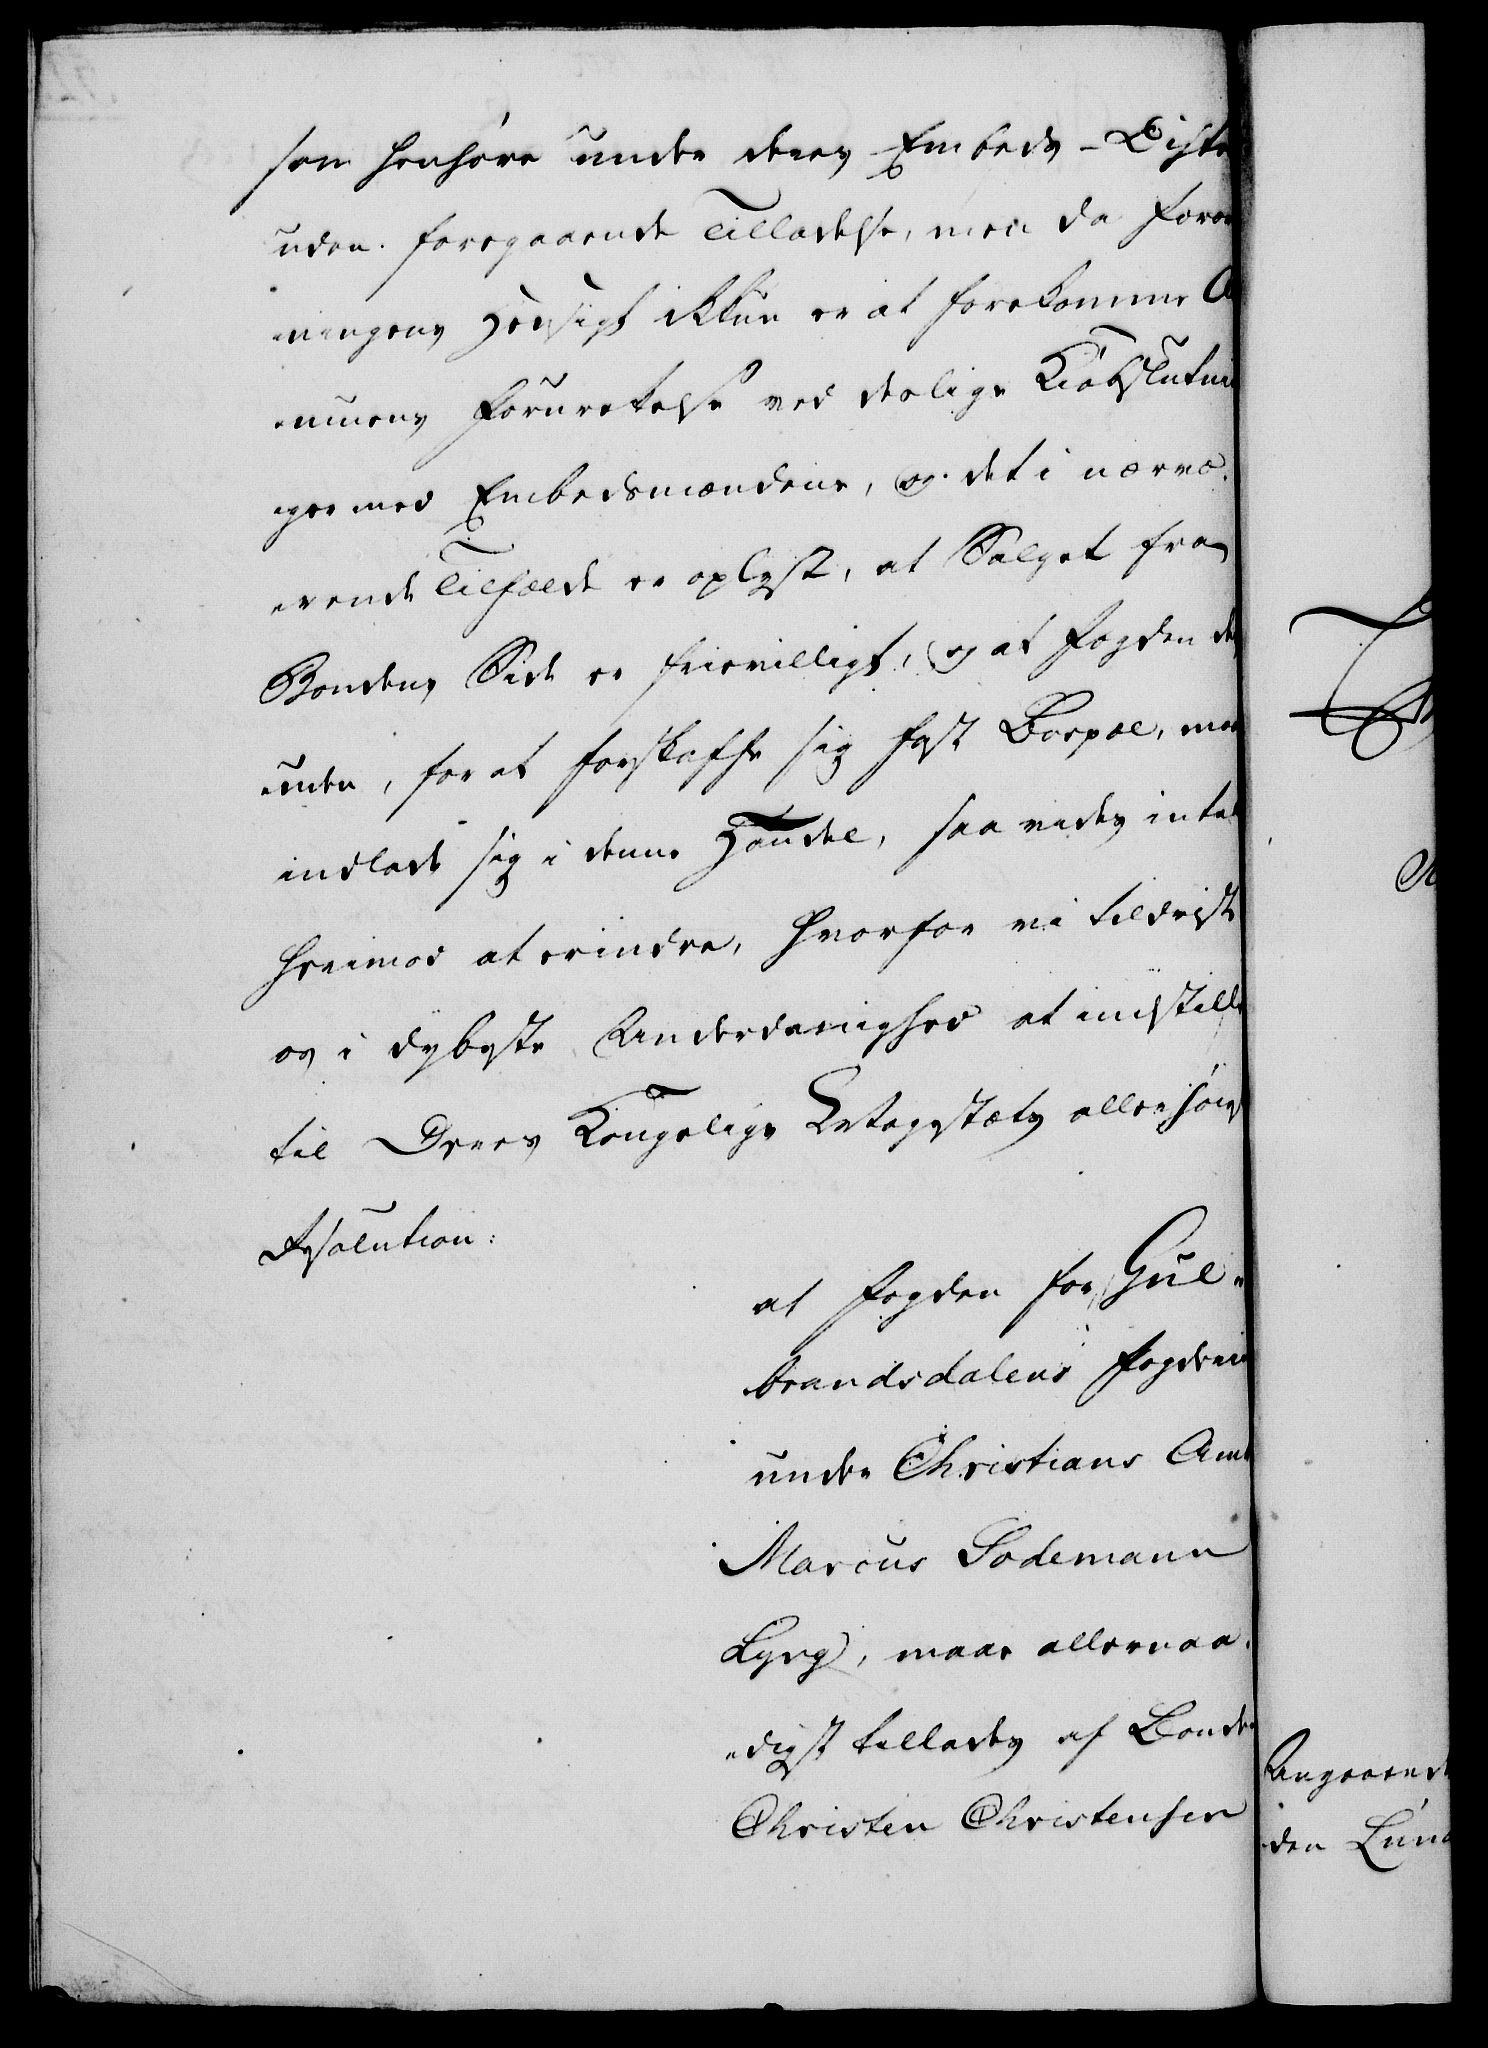 som henhøre under deres Embeds-Distr
uden foregaaende Tilladelse, men da Foror
ningens Hensigt ikkun er at forekomme A
muens Forurettelse ved deslige Kiøbslutni
ger med Embedsmændene, og det i nærvæ-
rende Tilfælde er oplyst, at Salget fra
Bondens Side er frievilligt, og at Fogden des
uden, for at forskaffe sig fast Boepæl, maa
indlade sig i denne Handel, saa vides intet
herimod at erindre, hvorfor vi tildriste
os i dybeste Underdanighed at indstille
til Deres Kongelige Majestæts allerhøieste
Resolution:
at Fogden for Gul-
brandsdalens Fogderie
under Christians Amt
Marcus Sodemann
Lyng, maae allernaa-
digst tillades af Bonde
Christen Christensen
Angaaende
den Lund